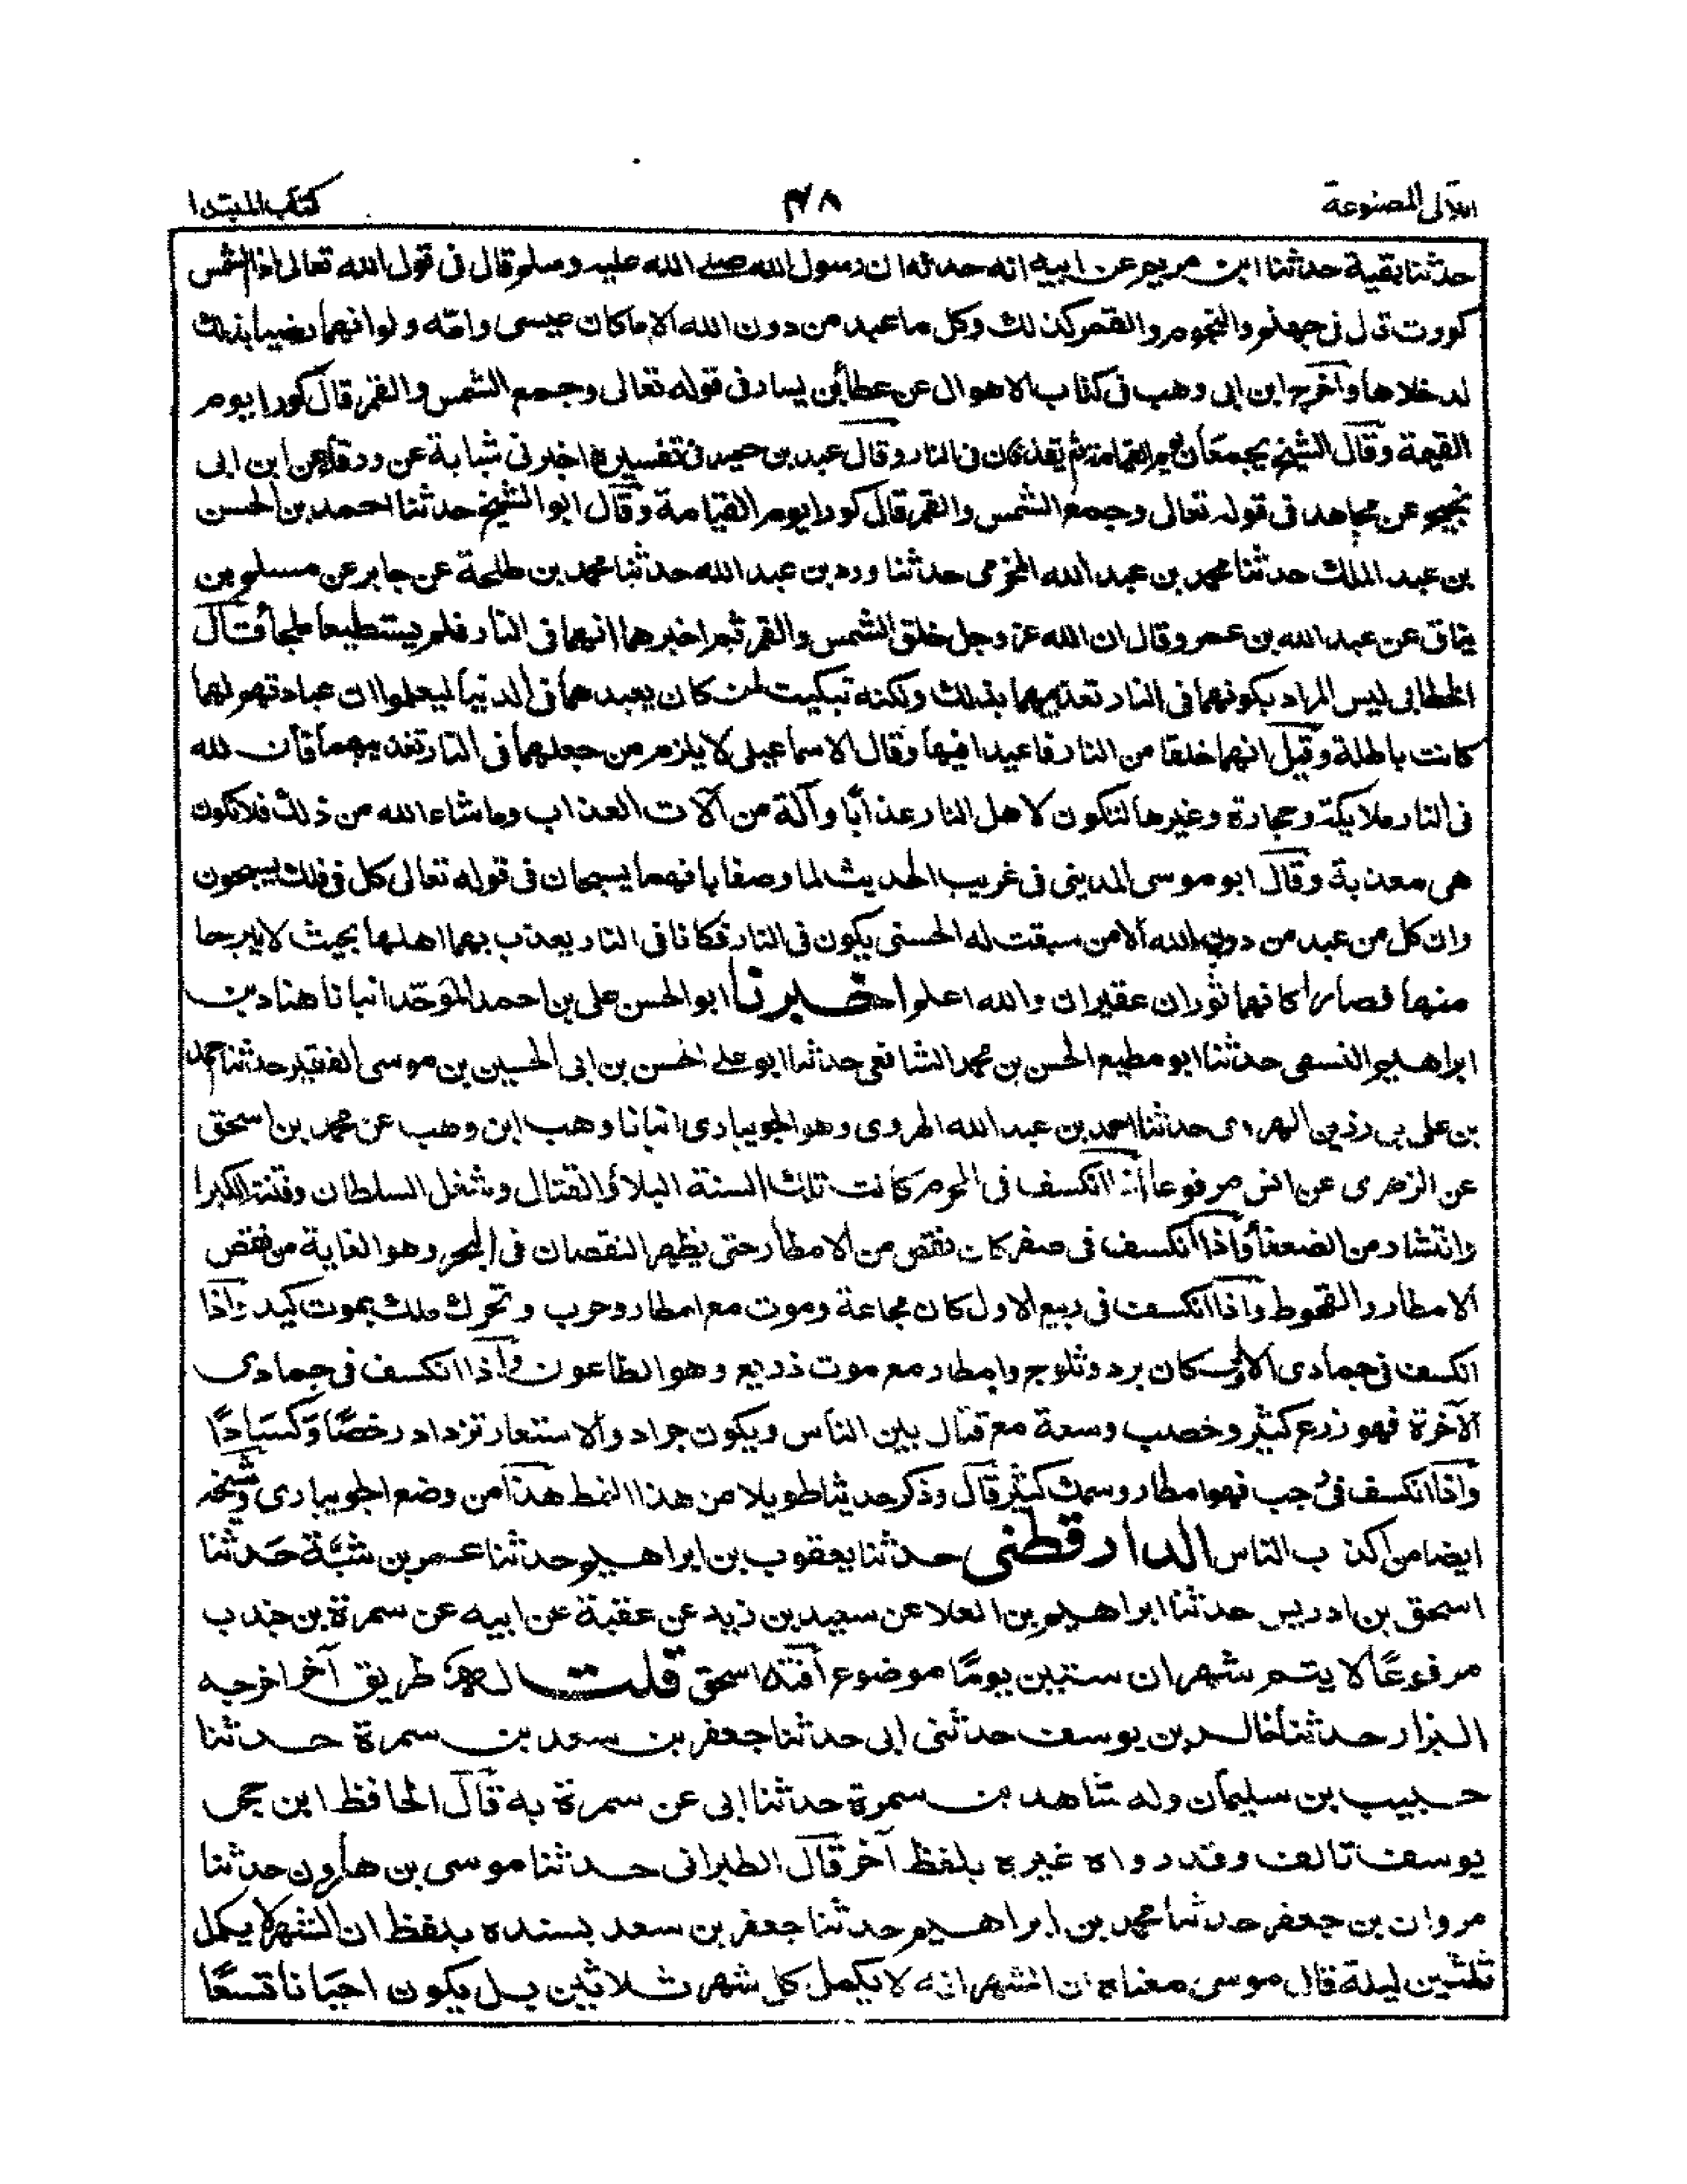 اللآلى المصنوعة ٤٨ كتاب المبتدا
حدثنا بقية حدثنا ابن مريم عن ابيه انه حدثه ان رسول الله صلے الله عليه وسلم قال فى قول الله تعالى اذا الشمس
كورت قال فى جهنم والنجوم والقمر كذلك وكل ما عبد من دون الله الا ما كان عيسى وامّه ولو انهما رضيا بذلك
لدخلاها وآخرج ابن ابى وهب فى كتاب الاهوال عن عطأبن يسار فى قوله تعالى وجمع الشمس والقمر قال كورا يوم
القيمة وقال الشيخ يجمعان يوم القيامة ثم يقذفان فى النار وقال عبد بن حميد فى تفسيره اخبرنى شبابة عن ورقأعن ابن ابى
نجيح عن مجاهد فى قوله تعالى وجمع الشمس والقمر قال كورا يوم القيامة وقال ابو الشيخ حدثنا احمد بن الحسن
بن عبد الملك حدثنا محمد بن عبد الله المخزمى حدثنا ورد بن عبد الله حدثنا محمد بن طلحة عن جابر عن مسلم بن
يناق عن عبد الله بن عمرو قال ان الله عز وجل خلق الشمس والقمر ثم اخبرهما انهما فى النار فلم يستطيعا ملجأ وقال
الخطابى ليس المراد بكونهما فى النار تعذيبهما بذلك ولكنه تبكيت لمن كان يعبدهما فى الدنيا ليعلموا ان عبادتهم لهما
كانت باطلة وقيل انهما خلقا من النار فاعيدا فيها وقال الاسماعيلى لا يلزم من جعلهما فى النار تعذيبهما فأن لله
فى النار ملايكة وحجارة وغيرها لتكون لاهل النار عذابًا وآلة من آلات العذاب وما شاء الله من ذلك فلا تكون
هى معذبة وقال ابو موسى المدينى فى غريب الحديث لما وصفا بانهما يسبحان فى قوله تعالى كل فى فلك يسبحون
وان كل من عبد من دون الله الا من سبقت له الحسنى يكون فى النار فكانا فى النار يعذب بهما اهلها بحيث لا يبرحا
منهما فصارا كانهما ثوران عقيران والله اعلم اخبرنا ابو الحسن على بن احمد الموحّد انبانا هناد بن
ابراهيم النسفى حدثنا ابو مطيع الحسن بن محمد الشافعى حدثنا ابو على الحسن بن ابى الحسين بن موسى الفقير حدثنا محمد
بن على بن رزين الهروى حدثنا احمد بن عبد الله الهروى وهو الجويبارى انبانا وهب ابن وهب عن محمد بن اسحق
عن الزهرى عن انس مرفوعا اذا انكسف فى المحرم كانت تلك السنة البلاؤ القتال وشغل السلطان وفتنة الكبرا
وانتشار من الضعفأ واذا انكسف فى صفر كان نقص من الامطار حتى يظهر النقصان فى البحر وهو الغاية من نقص
الامطار والقحوط واذا انكسف فى ربيع الاول كان مجاعة وموت مع امطار وحرب وتحرك ملك بموت كبيد واذا
انكسف فى جمادى الاولى كان برد وثلوج وامطار مع موت ذريع وهو الطاعون واذا انكسف فى جمادى
الآخرة فهو زرع كثير وخصب وسعة مع قتال بين الناس ويكون جراد والاستعار تزداد رخصًا وَكسَادًا
واذا انكسف فى رجب فهو امطار وسمك كثير قال وذكر حديثا طويلا من هذا النمط هذا من وضع الجويبارى وشيخه
ايضا من اكذب الناس الدارقطنى حدثنا يعقوب بن ابراهيم حدثنا عمر بن شبّة حَدثنا
اسحق بن ادريس حدثنا ابراهيم بن العلا عن سعيد بن زيد عن عقبة عن ابيه عن سمرة بن جندب
مرفوعًا لا يتم شهران ستين يومًا موضوع آفته اسحق قلت له طريق آخر اخرجه
البزار حدثنا خالد بن يوسف حدثنى ابى حدثنا جعفر بن سعد بن سمرة حدثنا
حبيب بن سليمان وله شاهد بن سمرة حدثنا ابى عن سمرة به قال الحافظ ابن حجر
يوسف تالف وقد رواه غيره بلفظ آخر قال الطبرانى حدثنا موسى بن هارون حدثنا
مروان بن جعفر حدثنا محمد بن ابراهيم حدثنا جعفر بن سعد بسنده بلفظ ان الشهر لا يكمل
ثلثين ليلة قال موسى معناه ان الشهر انه لا يكمل كل شهر ثلاثين بل يكون احيانا تسعًا